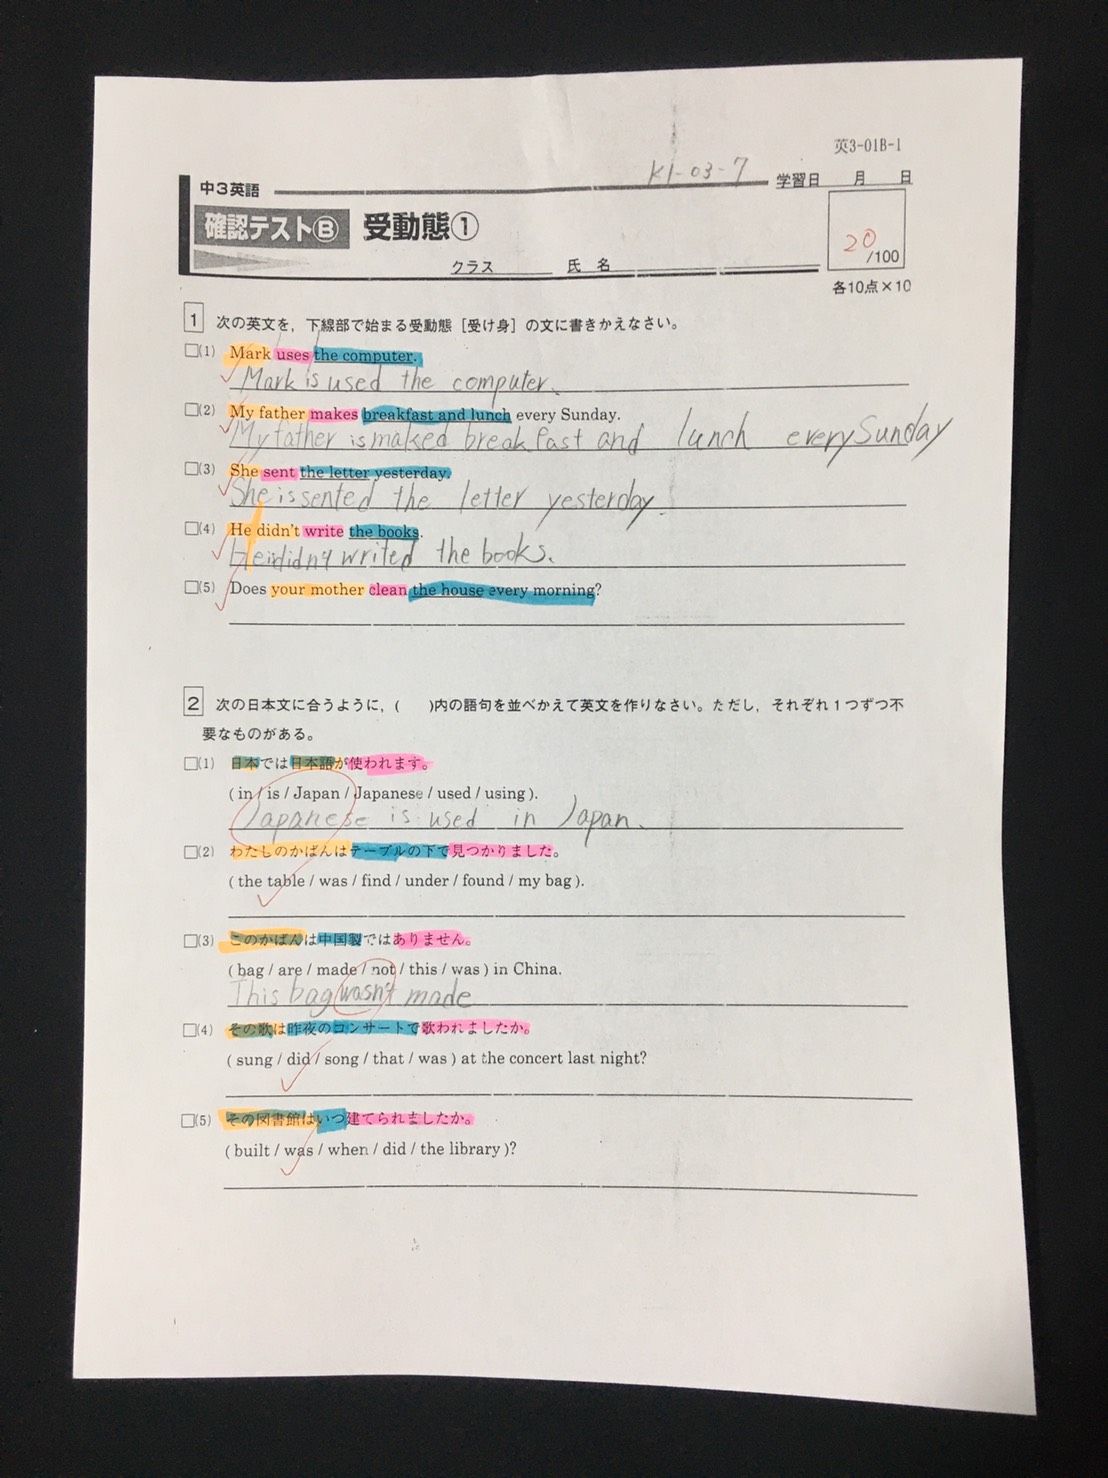 英3-01B-1
K1-03-7 学習日 月 日
中3英語
確認テストⒷ 受動態①
20/100
クラス 氏名
各10点×10
1 次の英文を，下線部で始まる受動態［受け身］の文に書きかえなさい。
□(1) Mark uses the computer.
Mark is used the computer.
□(2) My father makes breakfast and lunch every Sunday.
My father is maked breakfast and lunch every Sunday
□(3) She sent the letter yesterday.
She is sented the letter yesterday.
□(4) He didn't write the books.
writed the books.
□(5) Does your mother clean the house every morning?
2 次の日本文に合うように，( )内の語句を並べかえて英文を作りなさい。ただし，それぞれ1つずつ不
要なものがある。
□(1) 日本では日本語が使われます。
( in / is / Japan / Japanese / used / using ).
Japanese is used in Japan.
□(2) わたしのかばんはテーブルの下で見つかりました。
( the table / was / find / under / found / my bag ).
□(3) このかばんは中国製ではありません。
( bag / are / made / not / this / was ) in China.
This bag wasn't made
□(4) その歌は昨夜のコンサートで歌われましたか。
( sung / did / song / that / was ) at the concert last night?
□(5) その図書館はいつ建てられましたか。
( built / was / when / did / the library )?